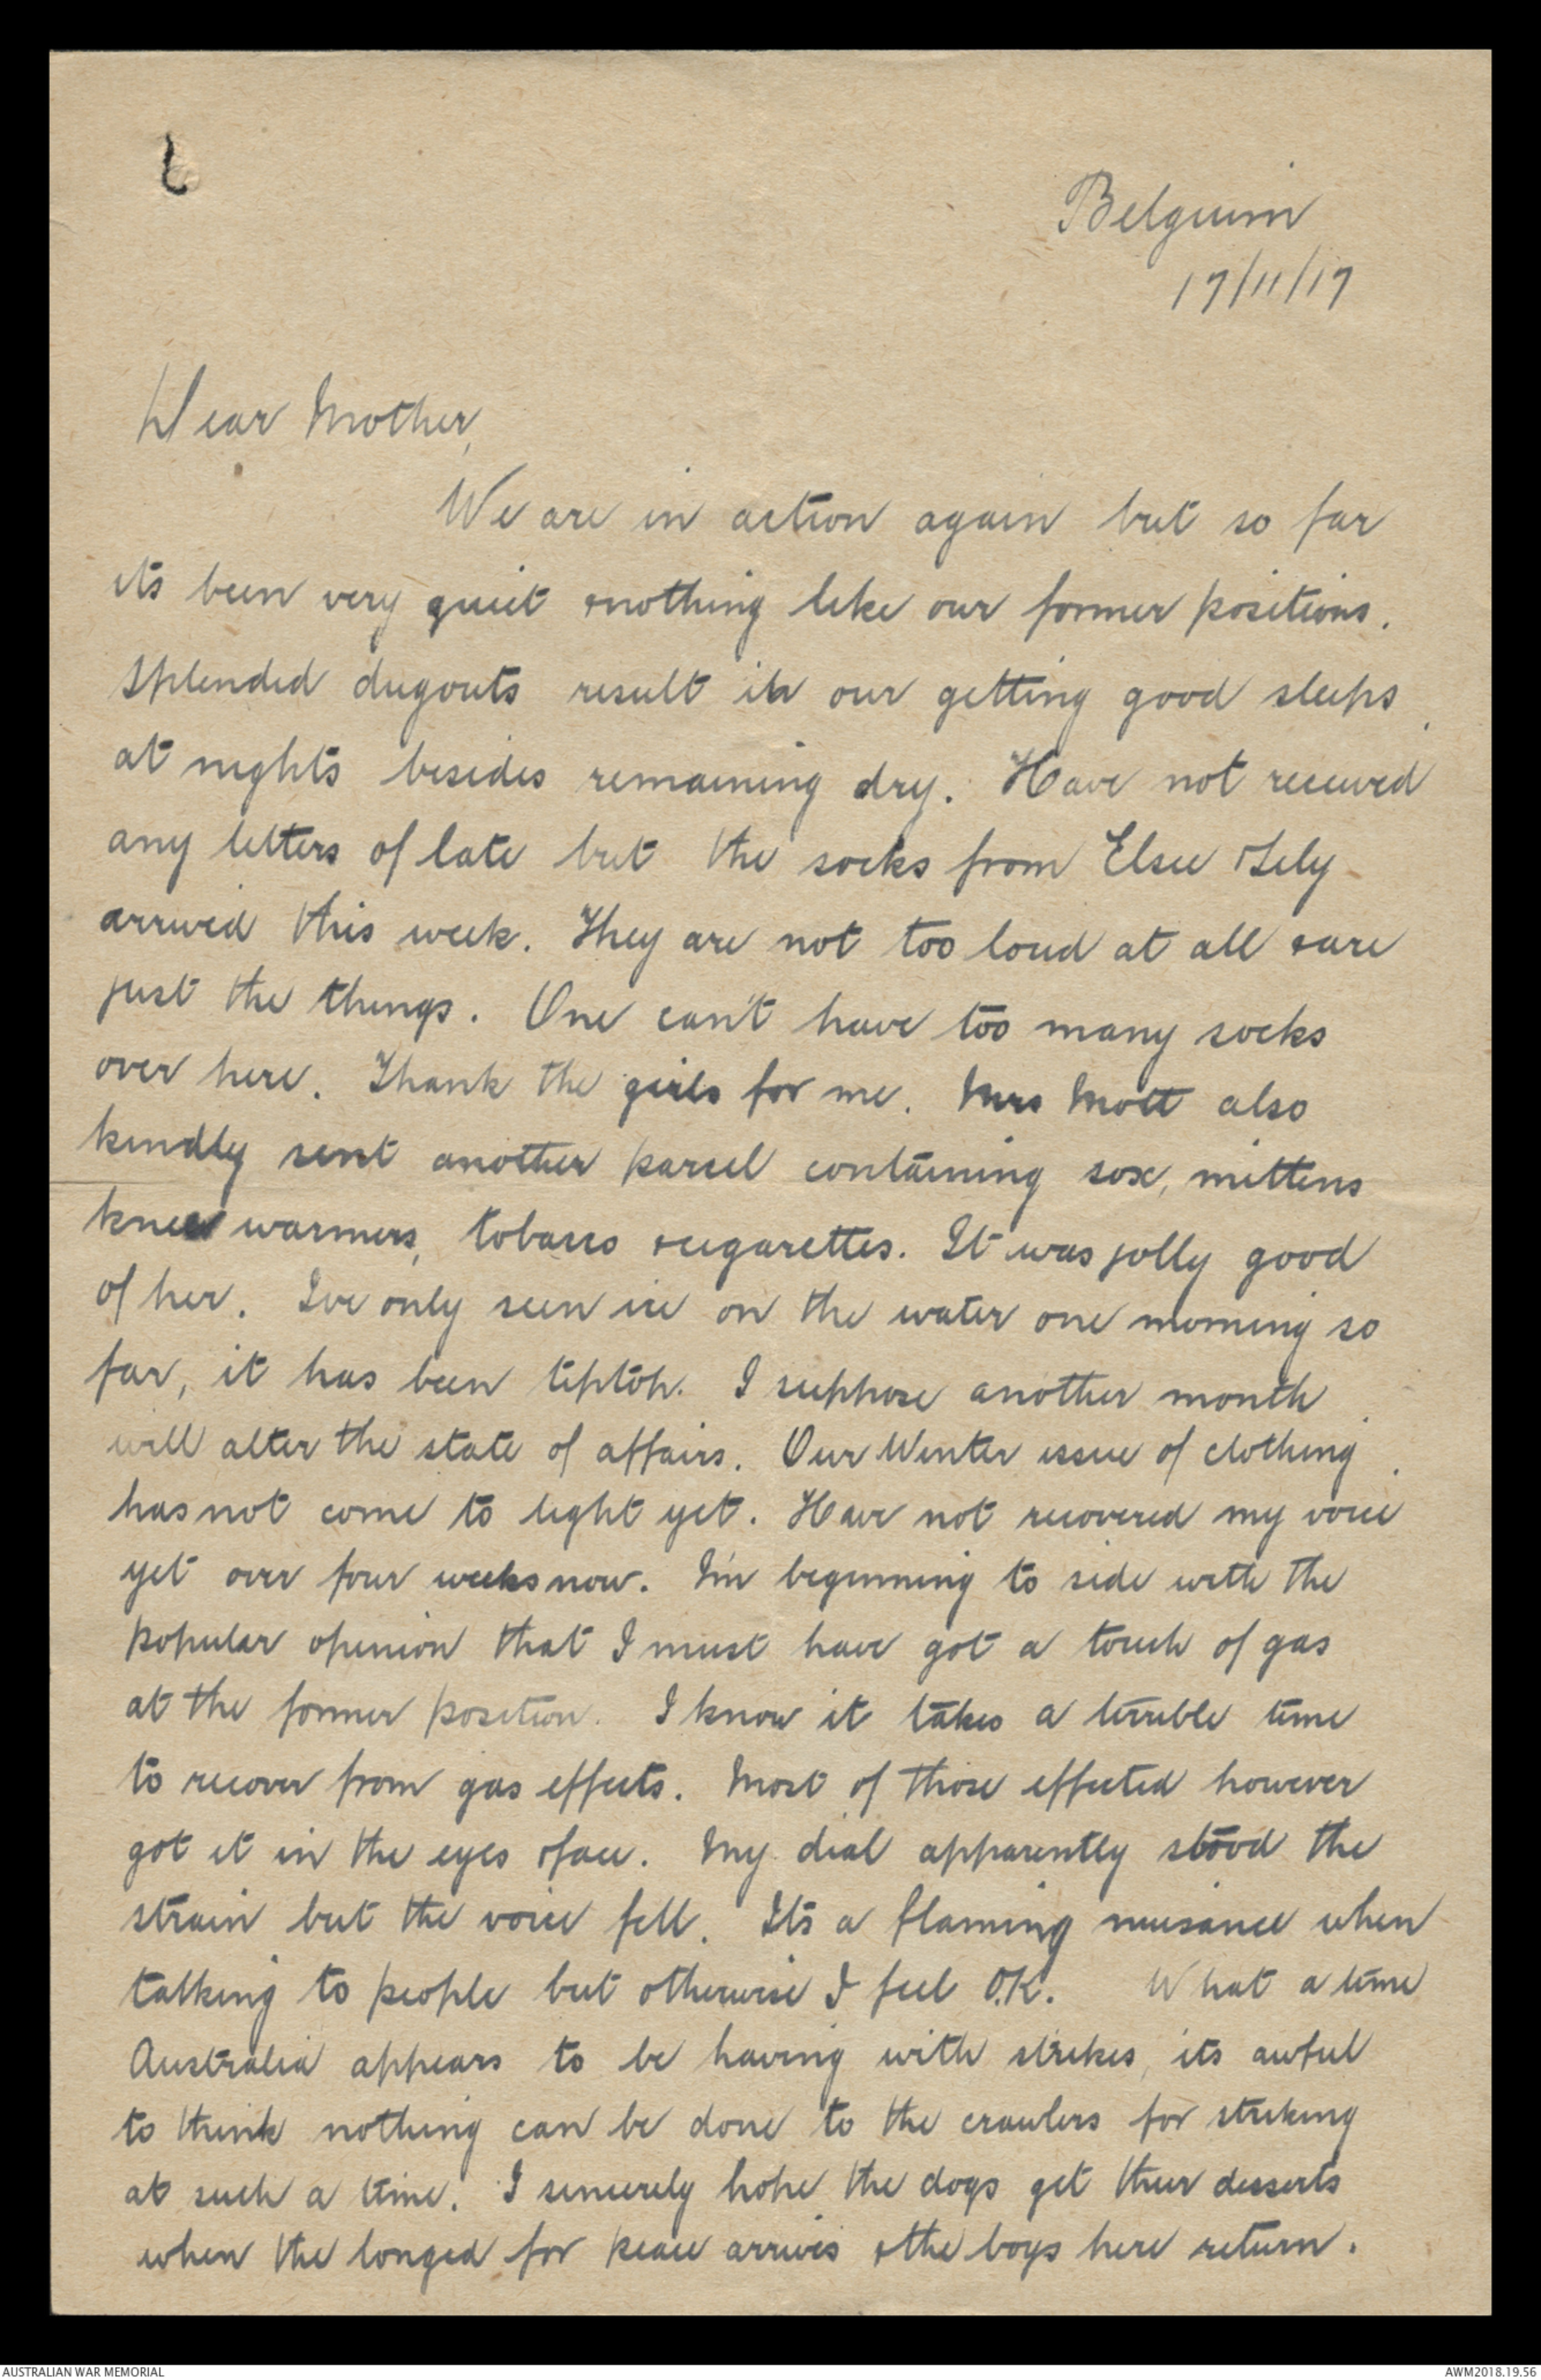 Belguim
17/11/17
Dear Mother,
We are in action again but so far
its been very quiet & nothing like our former positions.
Splended dugouts result in our getting good sleeps
at nights besides remaining dry. Have not received
any letters of late but the socks from Elsie & Lily
arrived this week. They are not too loud at all & are
just the things. One can't have too many socks
over here. Thank the girls for me. Mrs Mott also
kindly sent another parcel containing sox, mittens
knee warmers, tobacco & cigarettes. It was jolly good
of her. Ive only seen ice on the water one morning so
far, it has been tiptop. I suppose another month
will alter the state of affairs. Our Winter issue of clothing
has not come to light yet. Have not recovered my voice
yet over four weeks now. I'm beginning to side with the
popular opinion that I must have got a touch of gas
at the former position. I know it takes a terrible time
to recover from gas effects. Most of those effected however
got it in the eyes & face. My dial apparently stood the
strain but the voice fell. Its a flaming nuisance when
talking to people but otherwise I feel O.K. What a time
Australia appears to be having with strikes, its awful
to think nothing can be done to the crawlers for striking
at such a time. I sincerely hope the dogs get their desserts
when the longed for peace arrives & the boys here return.
AUSTRALIAN WAR MEMORIAL
AWM2018.19.56